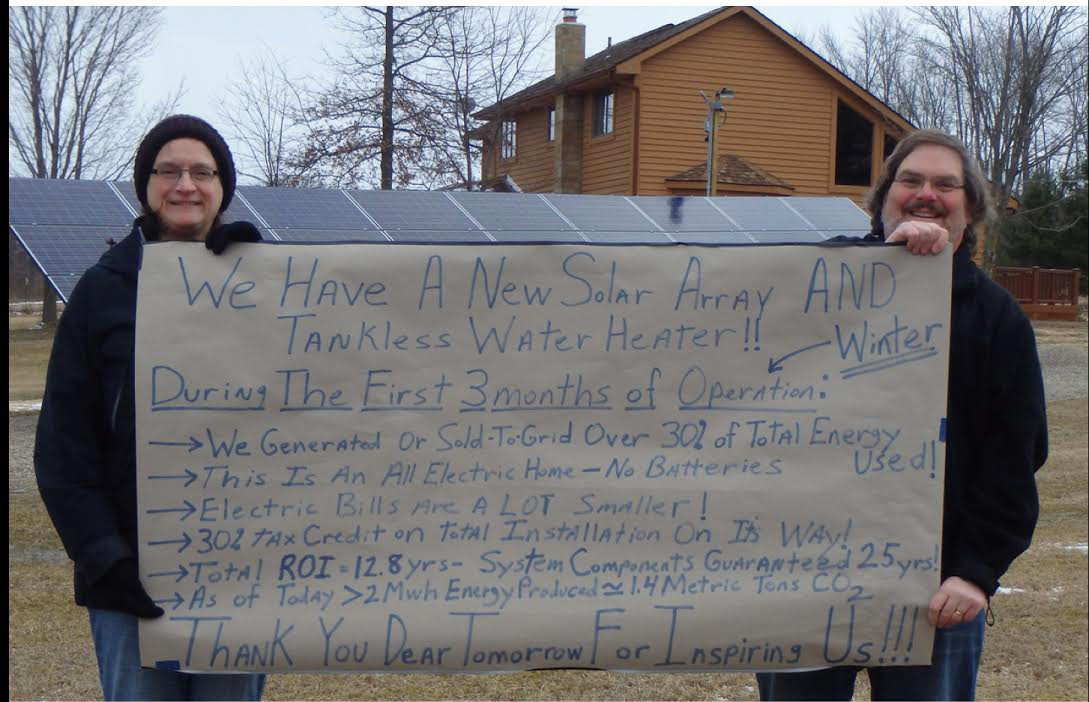 We Have A New Solar Array AND
Tankless Water Heater!!
Winter
During The First 3 months of Operation:
→ We Generated Or Sold-To-Grid Over 30% of Total Energy
Used!
→ This Is An All Electric Home – No Batteries
→ Electric Bills Are A LOT Smaller!
→ 30% tax Credit on Total Installation On Its Way!
→ Total ROI = 12.8 yrs - System Components Guaranteed 25 yrs!
→ As of Today >2 Mwh Energy Produced ≃ 1.4 Metric Tons CO₂
Thank You Dear Tomorrow For Inspiring Us!!!